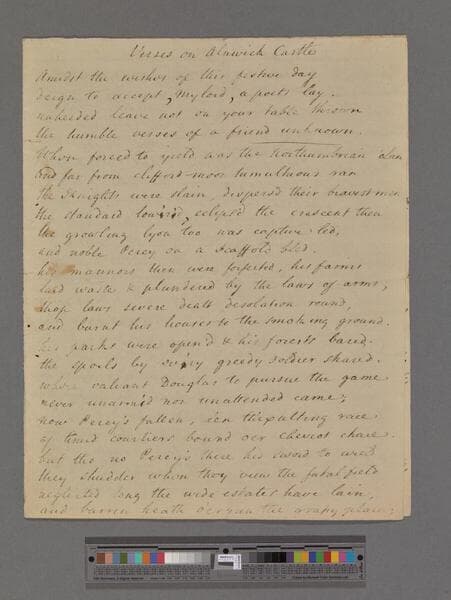 Verses on Alnwick Castle
Amidst the wishes of this festive day
deign to accept, Mylord, a poets lay.
unheeded leave not on your table thrown
the humble verses of a friend unknown.
When forced to yield was the Northumbrian clan
and far from Clifford moor tumultuous ran
the Knights were slain, dispers'd their bravest men
the standard low'r'd, eclips'd the crescent then
the growling lyon too was captive led,
and noble Percy on a Scaffold bled.
his mannors then were forfeited, his farms
laid waste & plundered by the laws of arms,
those laws severe dealt desolation round,
and burnt his houses to the smoking ground.
his parks were open'd & his forests bared
the spoils by ev'ry greedy soldier shared.
where valiant Douglas to pursue the game
never unarm'd nor unattended came;
now Percy's fallen, e'en th'exulting race
of timid courtiers bound oer cheviot chace.
but tho no Percy's there his sword to wield
they shudder when they view the fatal field
neglected long the wide estates have lain,
and barren heath oerran the grassy plain;